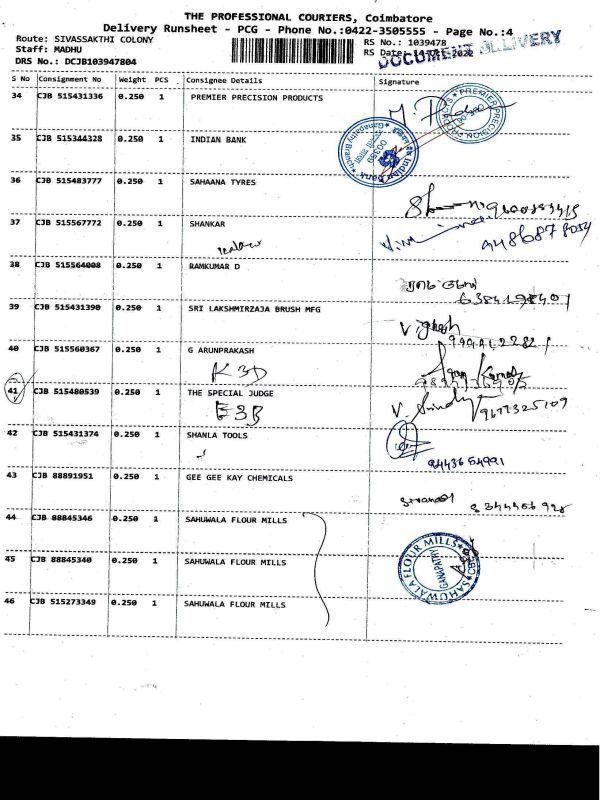 THE PROFESSIONAL COURIERS, Coimbatore
Delivery Runsheet - PCG - Phone No.:0422-3505555 - Page No.:4
Route: SIVASSAKTHI COLONY
Staff: MADHU
DRS No.: DCJB103947804
RS No.: 1039478
RS Date:
DOCUMENT DELIVERY
S No Consignment No Weight PCS Consignee Details Signature
34 CJB 515431336 0.250 1 PREMIER PRECISION PRODUCTS
PREMIER PRECISION
35 CJB 515344328 0.250 1 INDIAN BANK
Indian Bank
Ganapathy Branch
36 CJB 515483777 0.250 1 SAHAANA TYRES
37 CJB 515567772 0.250 1 SHANKAR
38 CJB 515564008 0.250 1 RAMKUMAR D
39 CJB 515431390 0.250 1 SRI LAKSHMIRZAJA BRUSH MFG
Vignesh
40 CJB 515560367 0.250 1 G ARUNPRAKASH
K3D
41 CJB 515480539 0.250 1 THE SPECIAL JUDGE
E3B
9677325109
42 CJB 515431374 0.250 1 SHANLA TOOLS
9443654991
43 CJB 88891951 0.250 1 GEE GEE KAY CHEMICALS
44 CJB 88845346 0.250 1 SAHUWALA FLOUR MILLS
45 CJB 88845340 0.250 1 SAHUWALA FLOUR MILLS
SAHUWALA FLOUR MILLS
GANAPATHY
46 CJB 515273349 0.250 1 SAHUWALA FLOUR MILLS